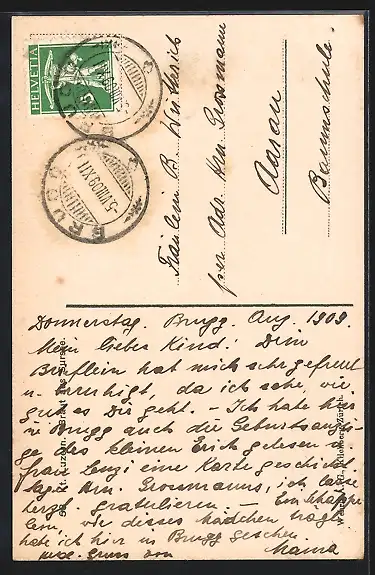 HELVETIA
5
BRUGG
5.VIII.09.XII
BRUGG
Fräulein B. Wüthrich
per Adr. Hrn. Grossmann
Aarau
Baumschule.
Donnerstag. Brugg. Aug. 1909.
Mein liebes Kind! Dein
Brieflein hat mich sehr gefreut
u. beruhigt, da ich sehe, wie
gut es Dir geht. – Ich habe hier
in Brugg auch die Geburtsanzei-
ge des kleinen Erich gelesen u.
Frau Lenzi eine Karte geschickt.
Sage Hrn. Grossmanns, ich lasse
herzl. gratulieren – Ein Käppe
lein, wie dieses Mädchen trägt,
habe ich hier in Brugg gesehen.
Gruss von Mama